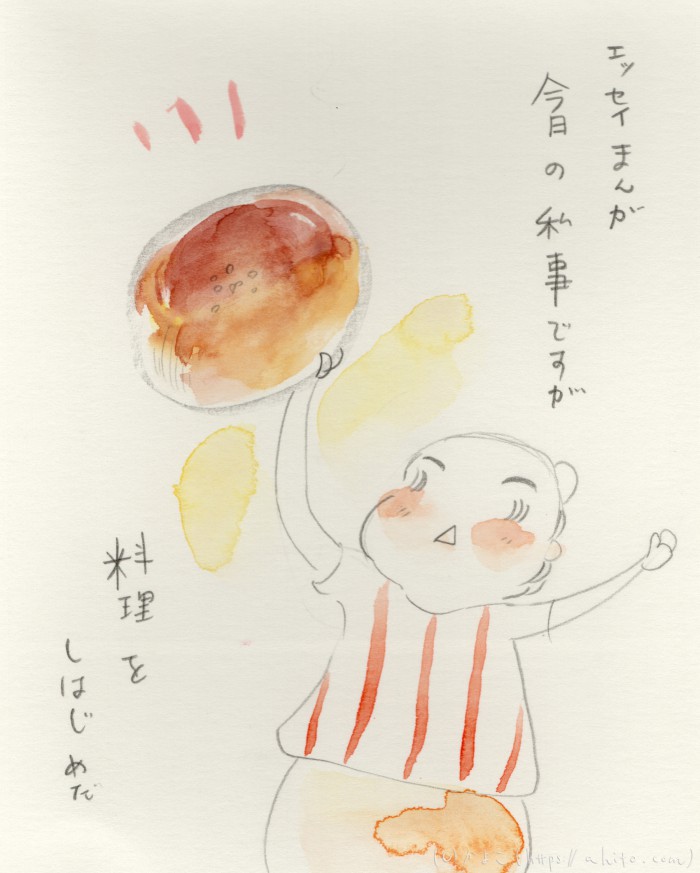 エッセイまんが
今日の私事ですが
料理を
しはじめだ